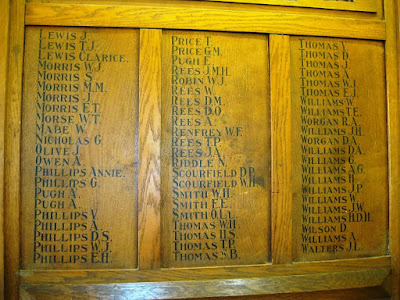 Lewis J.
Lewis T.J.
Lewis Clarice.
Morris W.J.
Morris S.
Morris M.M.
Morris J.
Morris E.T.
Morse W.T.
Mabe W.
Nicholas G.
Olive J.
Owen A.
Phillips Annie.
Phillips G.
Pugh A.
Pugh A.
Phillips V.
Phillips A.
Phillips D.S.
Phillips W.J.
Phillips E.H.
Price T.
Price G.M.
Pugh E.
Rees J.M.H.
Robin W.J.
Rees W.
Rees D.M.
Rees D.O.
Rees A.
Renfrey W.F.
Rees T.P.
Rees J.A.
Riddle N.
Scourfield D.P.
Scourfield W.H.
Smith W.H.
Smith F.E.
Smith O.I.L.
Thomas W.H.
Thomas H.S.
Thomas T.P.
Thomas B.
Thomas V.
Thomas D.
Thomas J.
Thomas A.
Thomas W.J.
Thomas E.J.
Williams W.
Williams T.E.
Morgan R.A.
Williams J.H.
Worgan D.A.
Williams D.A.
Williams G.
Williams A.G.
Williams H.
Williams J.P.
Williams W.
Williams J.W.
Williams H.D.H.
Wilson D.
Williams A.
Walters J.L.